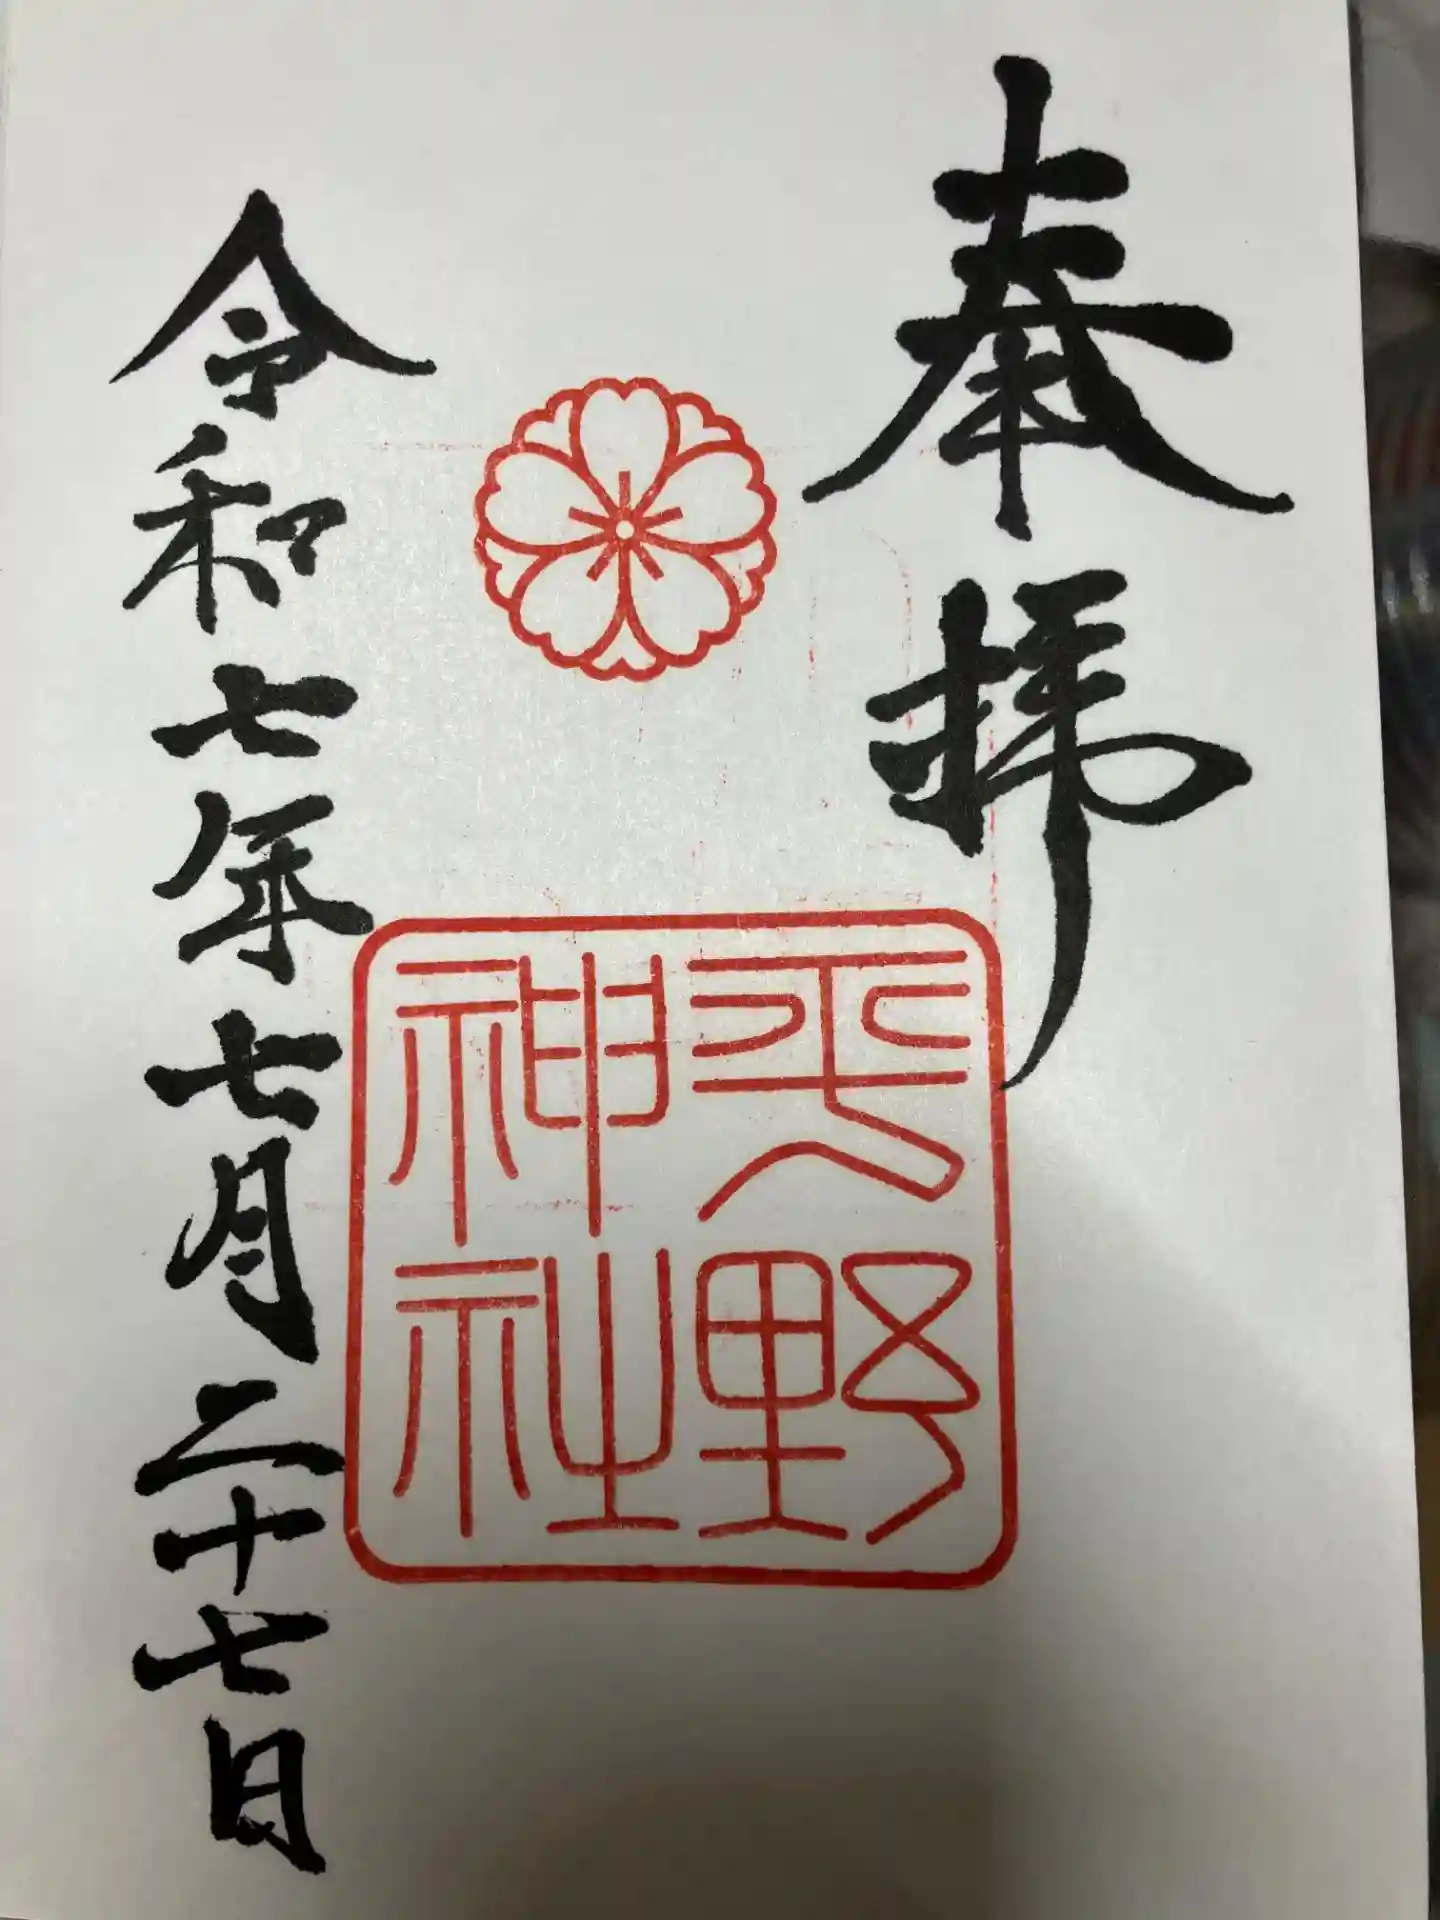 奉拝
平野
神社
令和七年七月二十七日